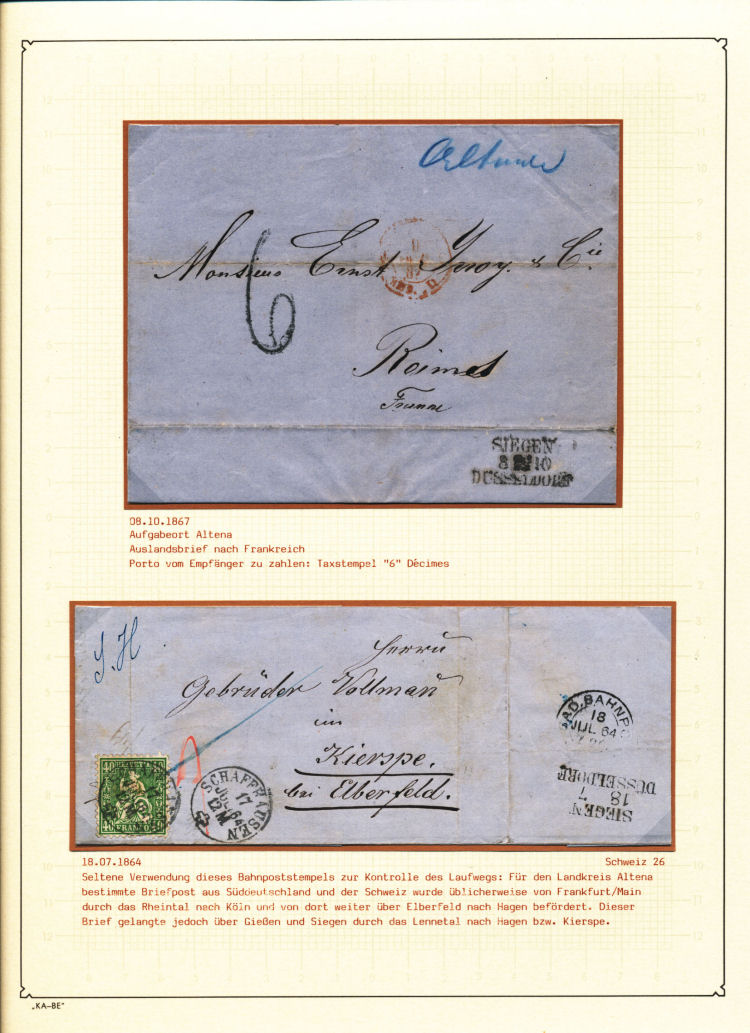 Altena
Monsieur Ernst Jrroy. & Cie
6
Reims
France
SIEGEN
8 10
DÜSSELDORF
08.10.1867
Aufgabeort Altena
Auslandsbrief nach Frankreich
Porto vom Empfänger zu zahlen: Taxstempel "6" Décimes
S.H
Herrn
Gebrüder Vollman
in
Kierspe.
bei Elberfeld.
40 HELVETIA 40
40 FRANCO 40
SCHAFFHAUSEN
17
JUL 64
12 M
BAD. BAHNPOST
18
JUL 64
SIEGEN
18 7
DÜSSELDORF
18.07.1864 Schweiz 26
Seltene Verwendung dieses Bahnpoststempels zur Kontrolle des Laufwegs: Für den Landkreis Altena
bestimmte Briefpost aus Süddeutschland und der Schweiz wurde üblicherweise von Frankfurt/Main
durch das Rheintal nach Köln und von dort weiter über Elberfeld nach Hagen befördert. Dieser
Brief gelangte jedoch über Gießen und Siegen durch das Lennetal nach Hagen bzw. Kierspe.
„KA–BE"